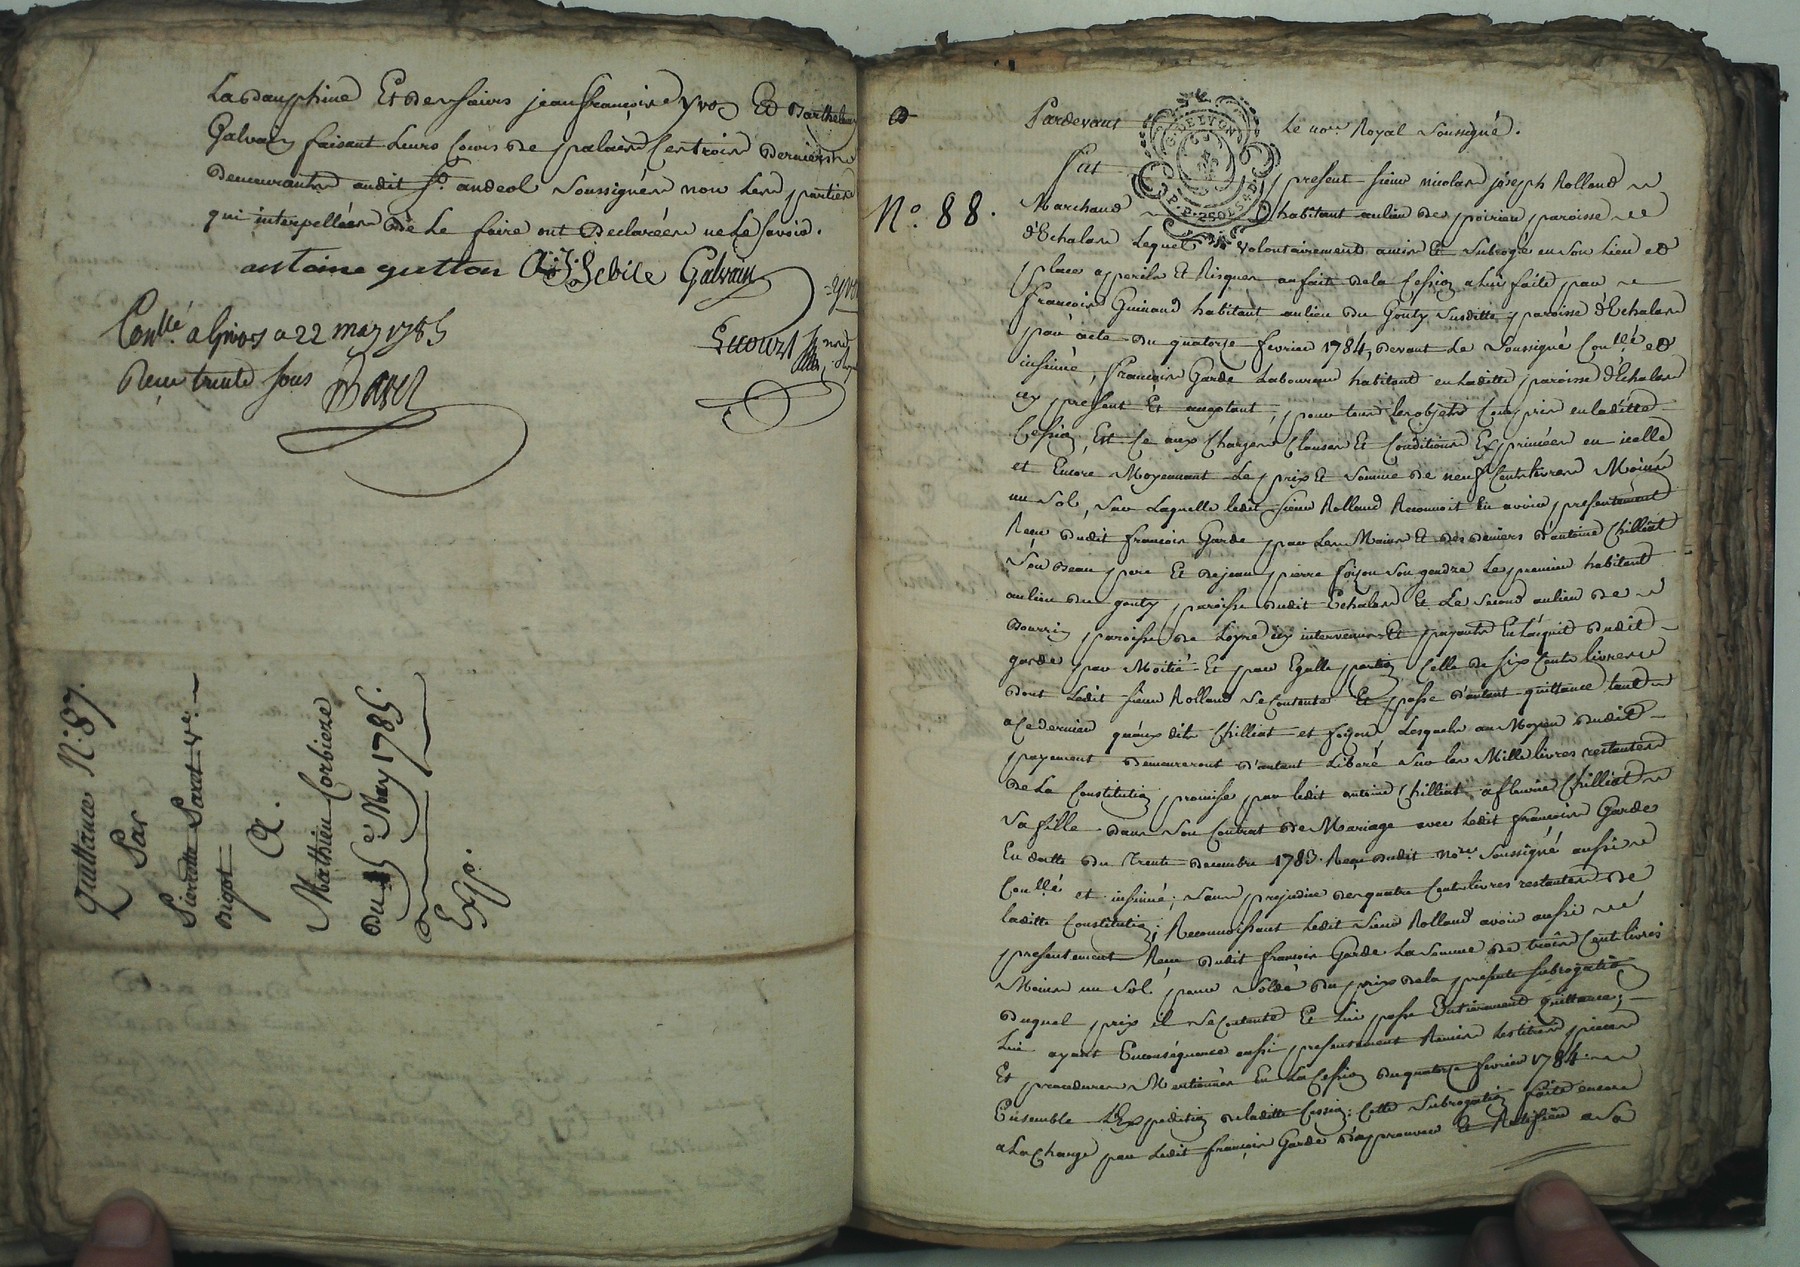 La dauphine Et de sieurs jean françois yvos Et Barthelemy
Galvain faisant leurs cours de palais Ces trois derniers
demeurants audit St. andeol Soussignés non les parties
qui interpellées de Le faire ont declarées ne le savoir.
antoine gutton Galvain
Conllé. a Givors a 22 may 1785
Recu trente sous
Quittance N.º 87.
Par
Pierrette Parat Ve.
A
Mathieu Corbieze
Du 15e. May 1785.
Exp.
Pardevant Le nore. Royal Soussigné.
Fut present sieur nicolas joseph Rolland
N.º 88.
Marchand habitant au lieu de poirieu paroisse
d'Echalas Lequel volontairement a mis Et Subrogé en Son Lieu et
place a perils Et Risques au fait de la Cession a lui faite par
François Guinand habitant au lieu du Gouty Susditte paroisse d'Echalas
par acte du quatorze fevrier 1784, devant Le Soussigné Conllé et
insinué, François Garde Laboureur habitant en laditte paroisse d'Echalas
icy present Et acceptant, pour tous les objets Compris en laditte
Cession, Est Ce aux Charges Clauses Et Conditions Exprimées en icelle
et Encore Moyennant Le prix Et Somme de neuf Cent livres Moins
un Sol, Sur Laquelle ledit sieur Rolland Reconnoit En avoir presentement
Reçu dudit françois Garde par Les Mains Et des deniers d'antoine Chilliat
Son Beau pere Et de jean pierre foyon Son gendre Le premier habitant
au lieu du gouty paroisse dudit Echalas Et Le Second au lieu de
paroisse de Loyre icy intervenus Et payants En l'acquit dudit
garde par Moitié Et par Egalle portion Celle de six Cent livres
dont Ledit sieur Rolland Se Contente Et passe d'autant quittance tant
a Ce dernier qu'aux dits Chilliat et foyon Lesquels au Moyen dudit
payement demeureront d'autant Liberé Sur les Mille livres restantes
de La Constitution promise par ledit antoine Chilliat a fleurie Chilliat
Sa fille dans Son Contrat de Mariage avec Ledit françois Garde
En datte du trente decembre 1783. Reçu dudit nore. Soussigné aussi
Conllé et insinué; Sans prejudice des quatre Cent livres restantes de
laditte Constitution; Reconnoissant Ledit Sieur Rolland avoir aussi
presentement Reçu dudit françois Garde La Somme de trois Cent livres
Moins un Sol pour Solde du prix de la presente Subrogation
duquel prix il Se Contente Et Lui passe Entierement quittance;
Lui ayant En conséquence aussi presentement Remis les titres pieces
Et procedures Mentionnés En La Cession du quatorze fevrier 1784.
Ensemble L'Expedition de laditte Cession: Cette Subrogation faite encore
a La Charge par Ledit françois Garde d'approuver Et Ratifier a Sa